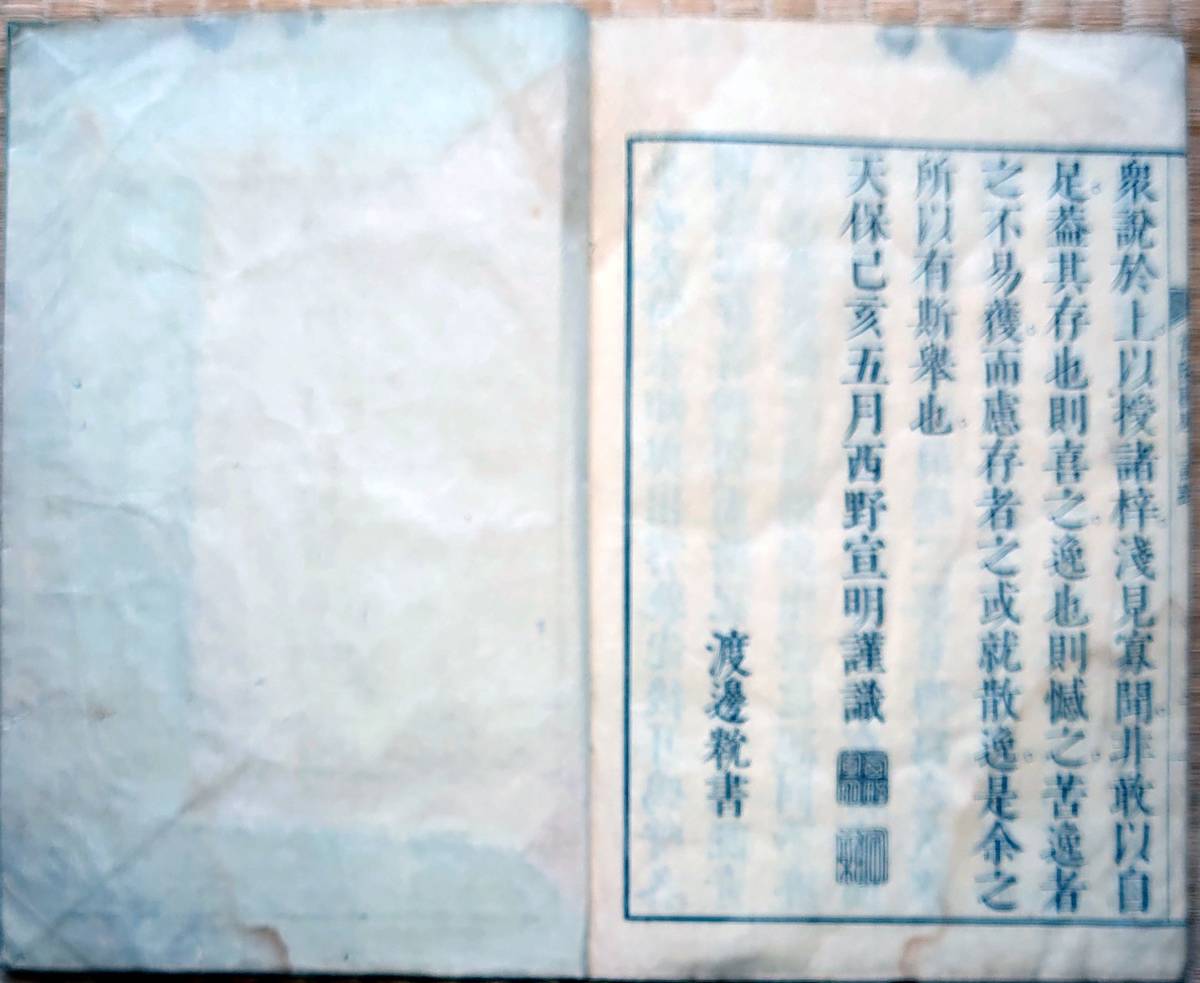 衆說於上以授諸梓淺見寡聞非敢以自
足蓋其存也則喜之逸也則憾之苦逸者
之不易獲而慮存者之或就散逸是余之
所以有斯舉也
天保己亥五月西野宣明謹識
渡邊書